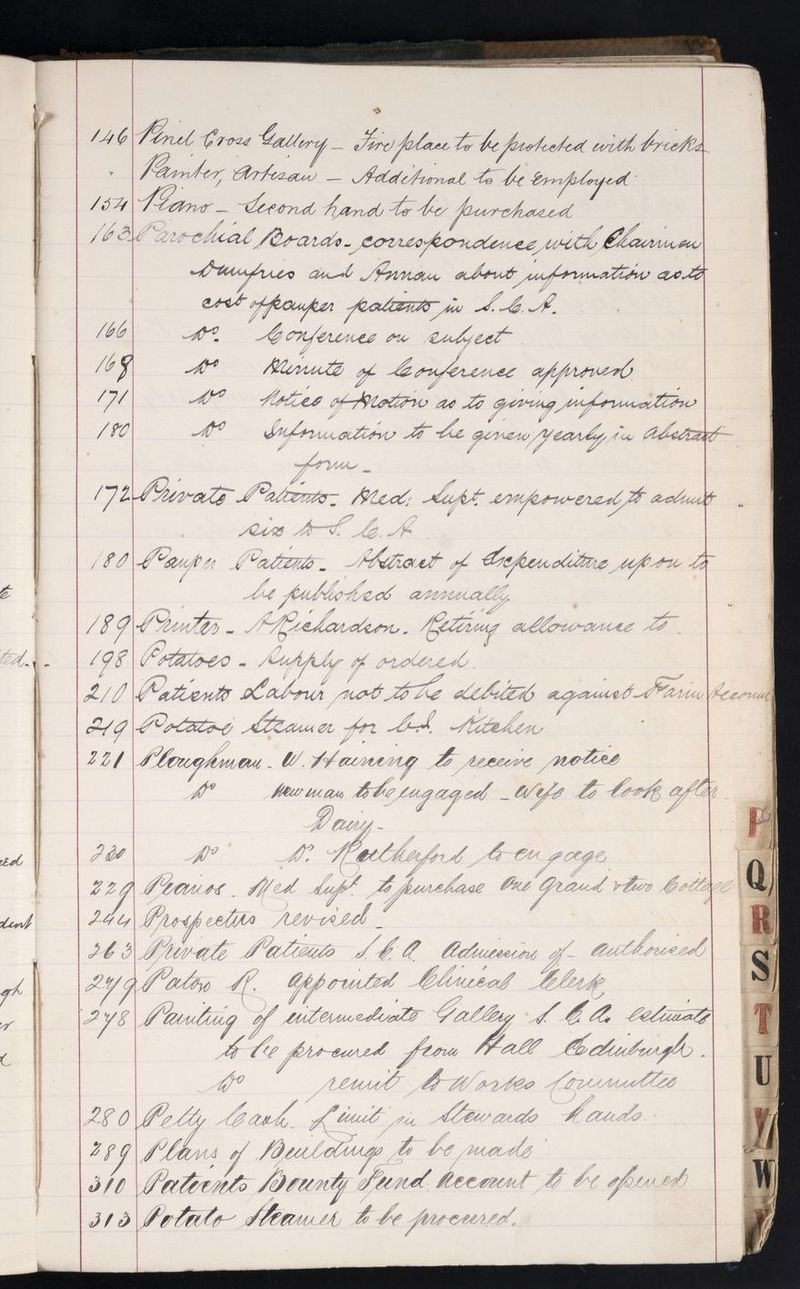 146 Pinel Cross Gallery - Fire place to be protected with bricks
" Painter, Artisan - Additional to be employed
154 Piano - Second hand to be purchased
163 Parochial Boards - correspondence with Chairmen
Dumfries and Annan about information as to
cost of pauper patients in S. C. A.
166 Do. Conference on subject
168 Do Minute of Conference approved
171 Do Notice of Motion as to giving information
180 Do Information to be given yearly in abstract
form -
172 Private Patients - Med: Supt. empowered to admit
six to S. C. A
180 Pauper Patients - Abstract of Expenditure upon to
be published annually
189 Printer - A Richardson. Retiring allowance to
198 Potatoes - Supply of ordered
210 Patients Labour not to be debited against Farm Account
219 Potatoe Steamer for Kitchen
221 Ploughman - W. Haining to receive notice
Do New man to be engaged - Wife to look after
Dairy -
230 Do Dr. Rutherford to engage
229 Peanos. Med Supt. to purchase One Grand & two Cottage
244 Prospectus revised -
263 Private Patients S. C. A. Admission of - authorised
279 Paton R. appointed Clinical Clerk
278 Painting of intermediate Gallery S. C. A. estimate
to be procured from Hall Edinburgh.
Do remit to Works Committee
280 Petty Cash. Limit in Stewards hands.
289 Plans of Buildings to be made
310 Patients Bounty Fund. Account to be opened
313 Potato Steamer to be procured.
P
Q
R
S
T
U
V
W